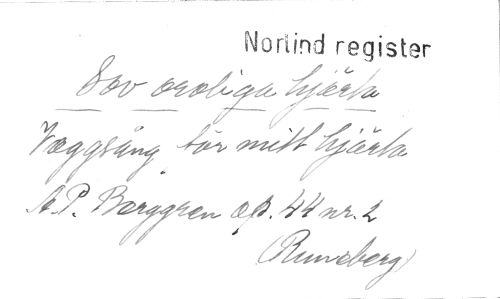 Norlind register
Sov oroliga hjärta
Vaggsång för mitt hjärta
A.P. Berggren op. 44 nr. 2
(Runeberg)